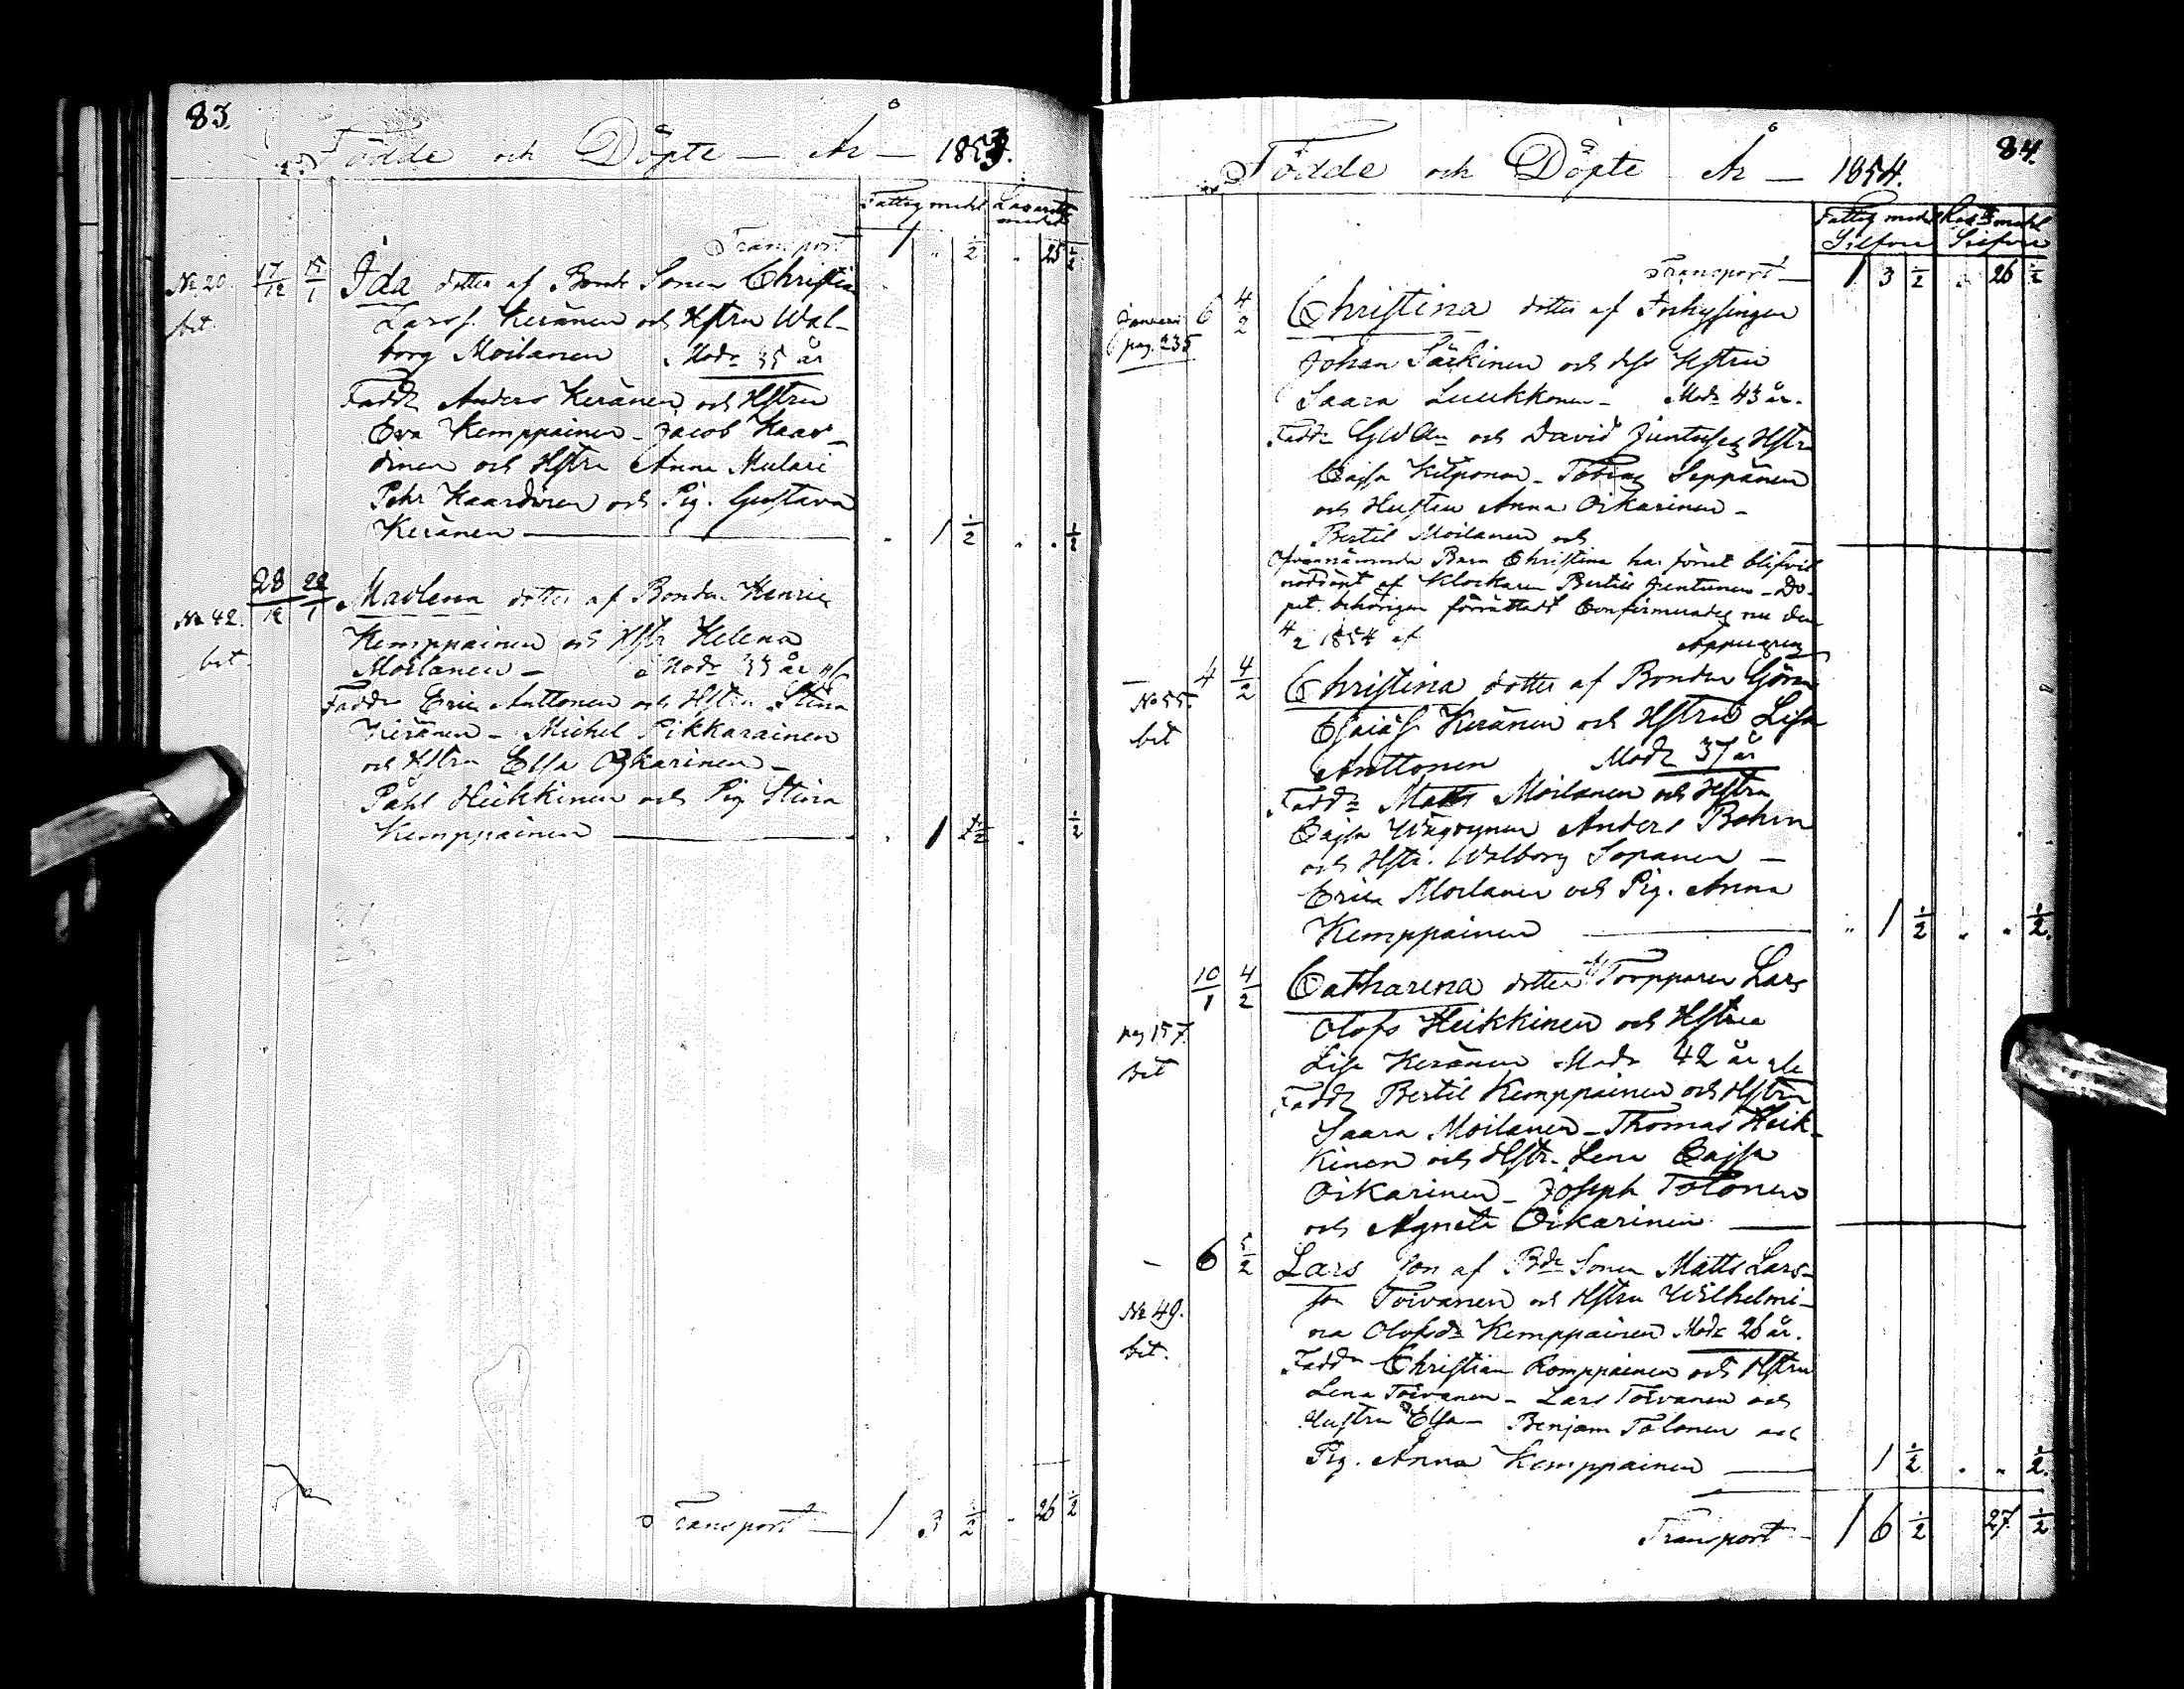 83.
Födde och Döpte — År — 1853.
Fattig medel Lazaretts medel
Transport 1 " ½ " 25 ½
No 20. 17/12 15/1 Ida dotter af Bonde Sonen Christian
bet. Larss. Keränen och Hstru Wal-
borg Moilanen Modr 35 år
Faddr Anders Keränen och Hstru
Eva Kemppainen - Jacob Kaar-
dinen och Hstru Anna Mulari
Pehr Kaardinen och Pig. Gustava
Keränen — . 1 ½ . . ½
28/12 22/1 Madlena dotter af Bonden Henric
No 42. Kemppainen och Hstr Helena
bet. Moilanen — Modr 33 år
Faddr Eric Anttonen och Hstru Stina
Keränen - Michel Pikkarainen
och Hstru Elsa Oikarinen -
Påhl Heikkinen och Pig Stina
Kemppainen — . 1 ½ . ½
Transport — 1 3 ½ - 26 ½
84.
Födde och Döpte År — 1854.
Fattig medel Laz medel
Silfver Silfver
Transport — 1 3 ½ " 26 ½
Januari 6 4/2 Christina dotter af Inhysingen
pag. 235 Johan Särkinen och dess Hstru
Saara Luukkonen - Modr 43 år.
Faddr och David Juntusez Hstr
Cajsa Kilponen - Tobias Seppänen
och Hustru Anna Oikarinen -
Bertil Moilanen och
Ofvannämnda Barn Christina har förut blifvit
nöddöpt af Klockaren Bertill Juntunen - Do-
pet behörigen förrättadt Confirmerades nu den
4/2 1854 af
4 4/2 Christina dotter af Bonden Göran
No 55. Esaiass. Keränen och Hstru Lisa
bet Anttonen Modr 37 år
Faddr Matts Moilanen och Hstru
Cajsa Anders Bohm
och Hstr. Walborg Sopanen —
Eric Moilanen och Pig. Anna
Kemppainen — " 1 ½ " " ½
10/1 4/2 Catharina dotter af Torpparen Lars
pag 157. Olofs Heikkinen och Hstrua
bet Lisa Keränen Modr 42 år
Faddr Bertil Kemppainen och Hstru
Saara Moilanen - Thomas Heik-
kinen och Hstr. Lena Cajsa
Oikarinen - Joseph Tolonen
och Agneta Oikarinen —
6 5/2 Lars son af Bde Sonen Matts Lars-
No 49. son Toivanen och Hstru Wilhelmi-
bet. na Olofsdr Kemppainen Modr 26 år.
Faddr Christian Komppainen och Hstru
Lena Toivanen - Lars Toivanen och
Hustru Elsa — Benjam Tolonen och
Pig. Anna Kemppainen — 1 ½ . " ½.
Transport — 1 6 ½ 27 ½